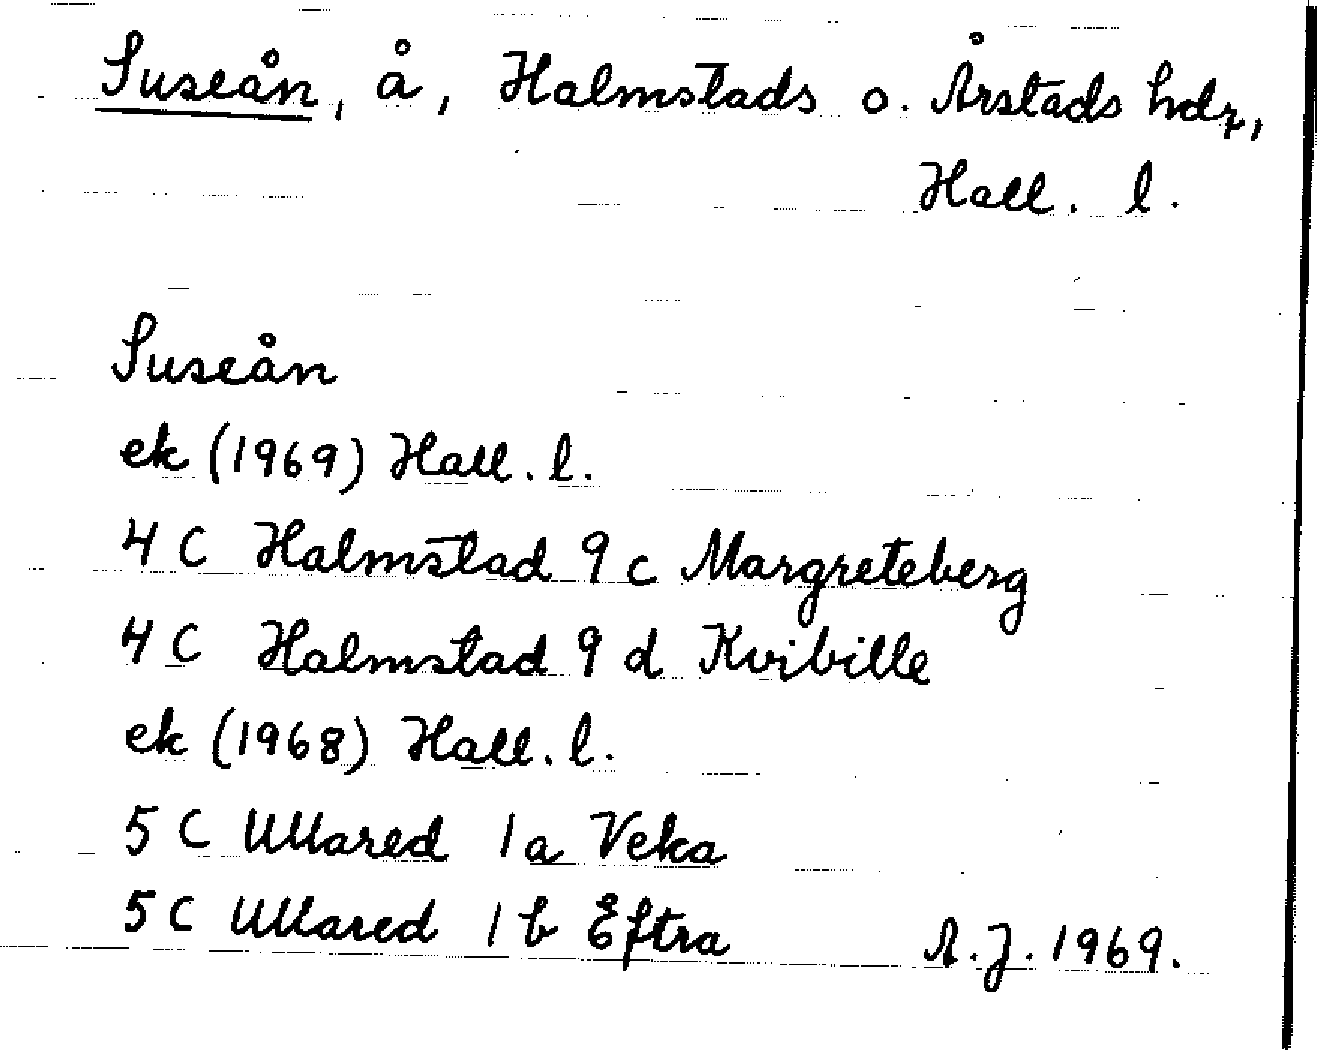 Suseån, å, Halmstads o. Årstads hdr,
Hall. l.
Suseån
ek (1969) Hall. l.
4 C Halmstad 9 c Margreteberg
4 C Halmstad 9 d Kvibille
ek (1968) Hall. l.
5 C Ullared 1 a Veka
5 C Ullared 1 b Eftra
A.J. 1969.